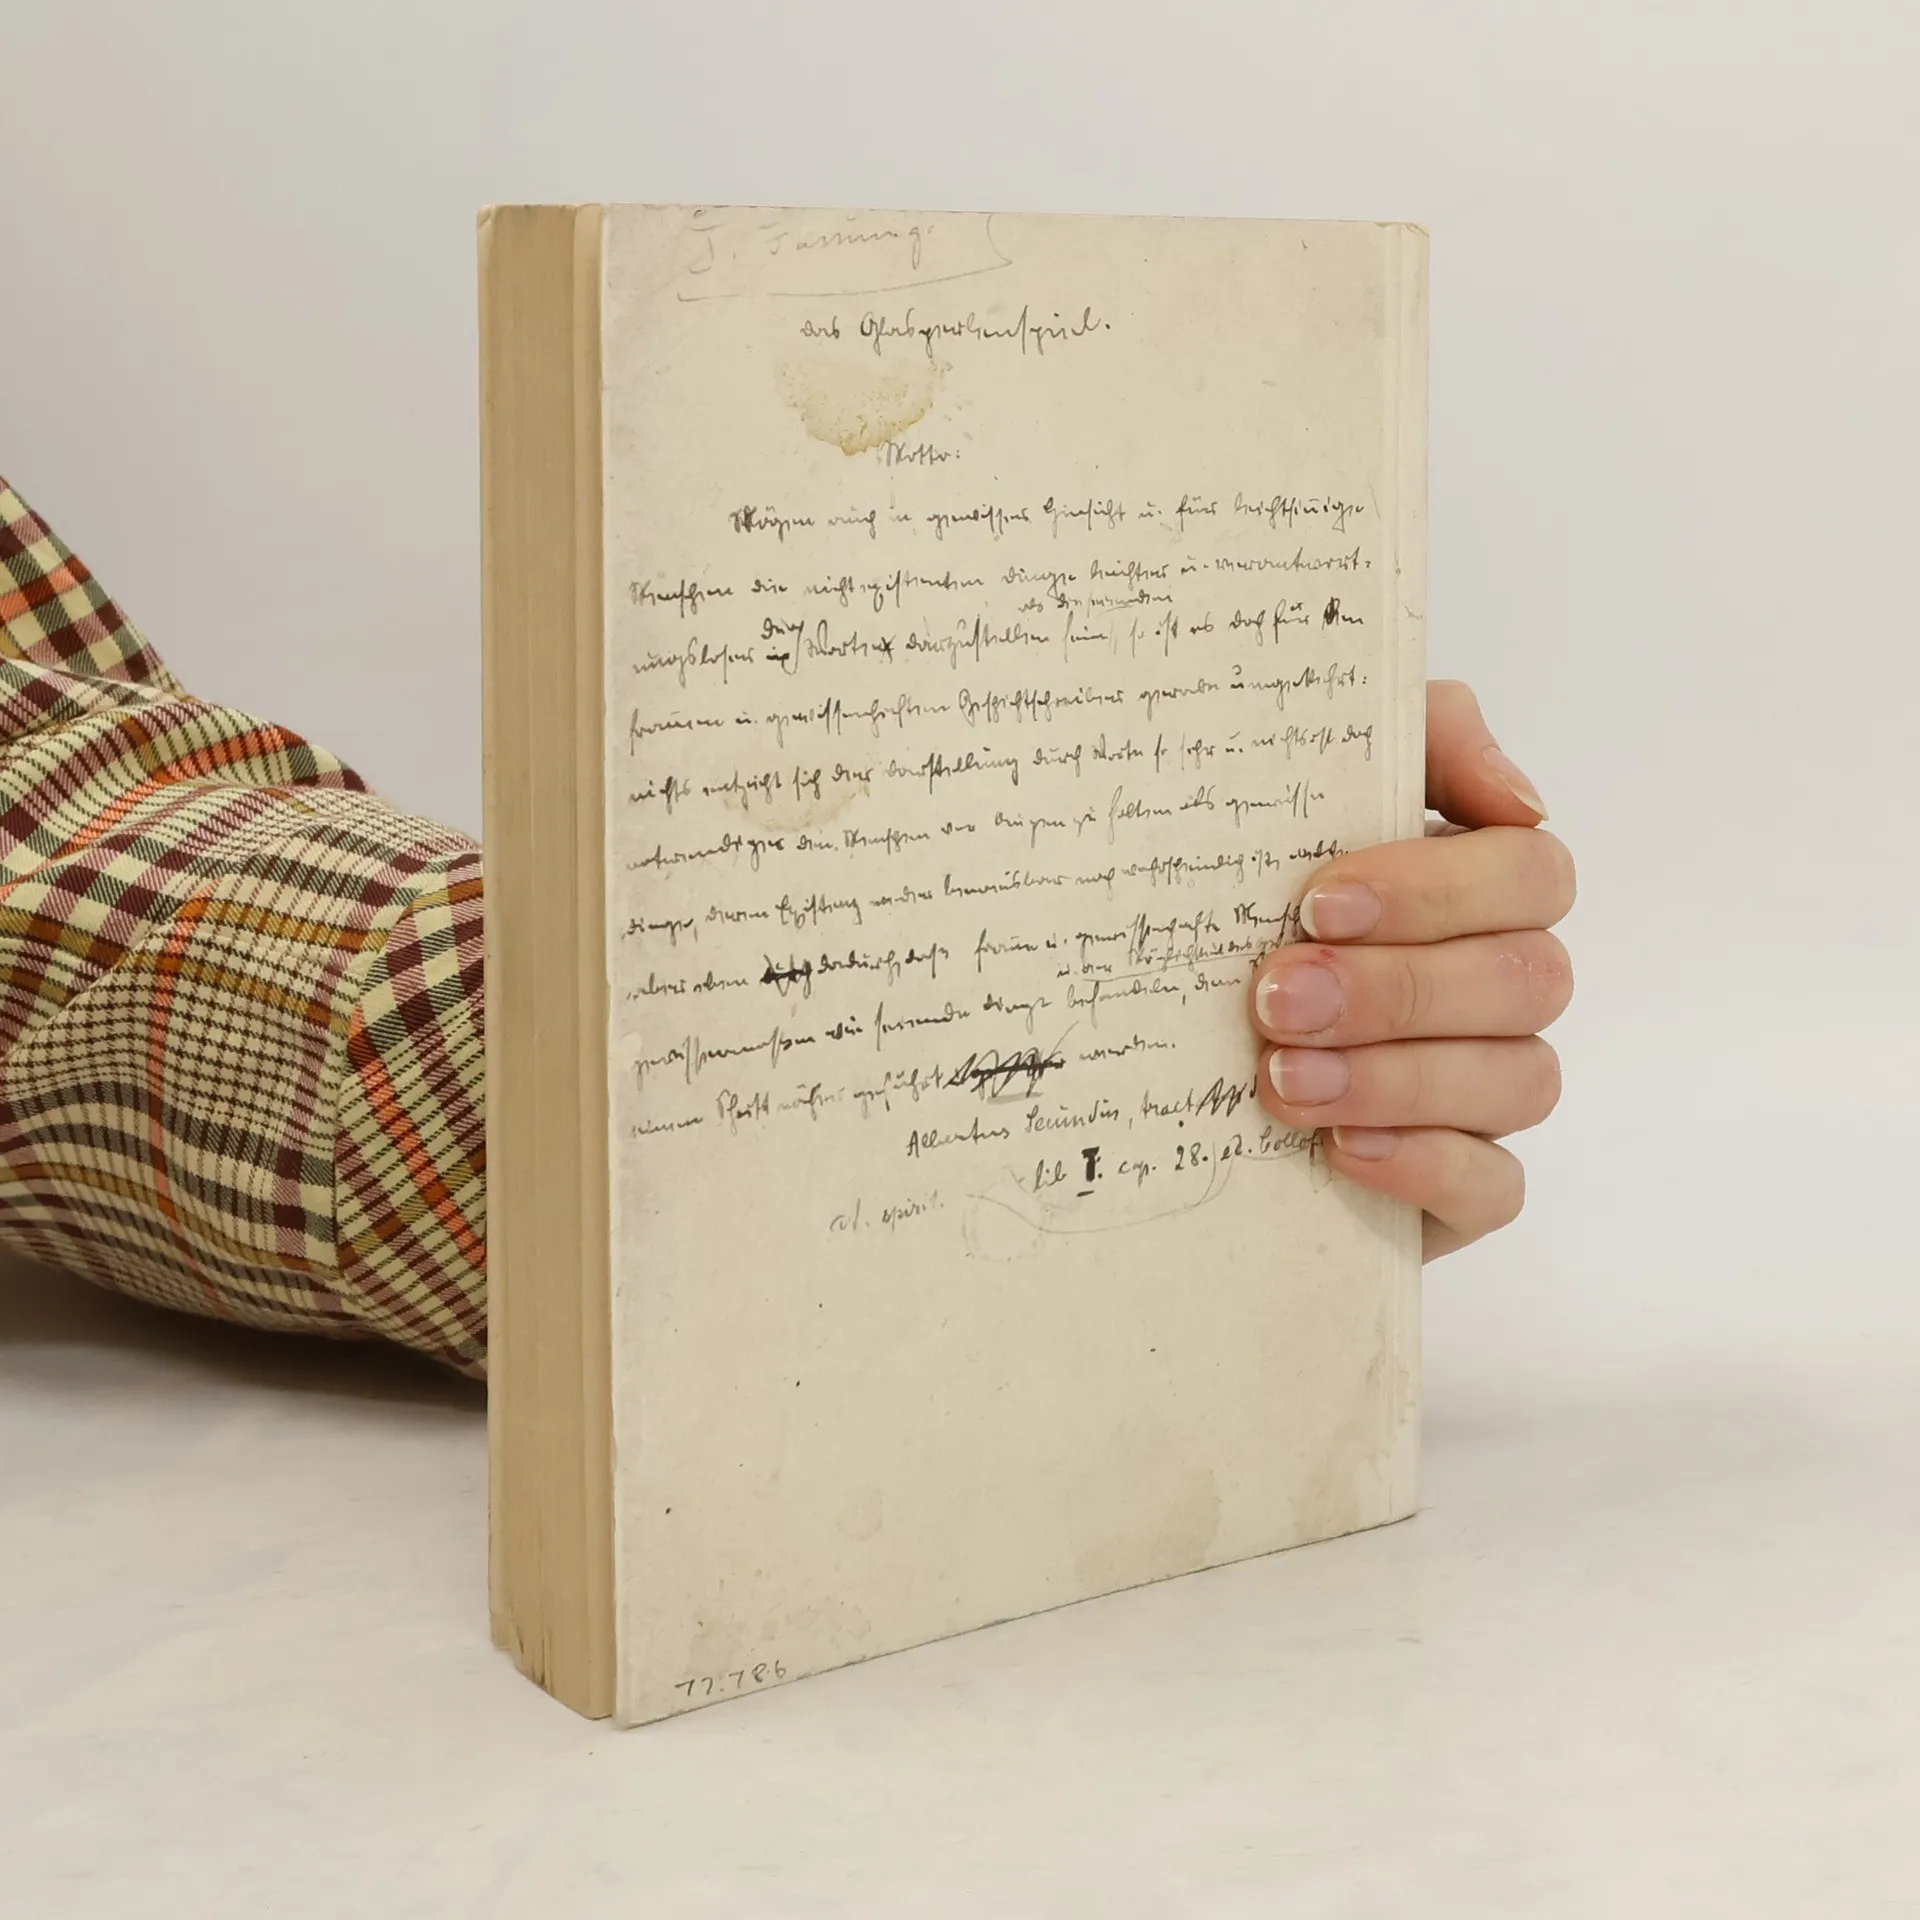 I. Fassung.
das Glasperlenspiel.
Motto:
Mögen auch in gewisser Hinsicht u. für leichtsinnige
Menschen die nicht existenten Dinge leichter u. verantwort-
als die seienden
durch
ungsloser in Worten darzustellen sein, so ist es doch für den
frommen u. gewissenhaften Geschichtschreiber gerade umgekehrt:
nichts entzieht sich der Darstellung durch Worte so sehr u. nichts ist doch
notwendiger den Menschen vor Augen zu halten als gewisse
Dinge, deren Existenz weder beweisbar noch wahrscheinlich ist, welche
aber eben dadurch, dass fromme u. gewissenhafte Mensch
u. der Möglichkeit des
gewissermassen wie seiende Dinge behandeln, dem
einen Schritt näher geführt werden.
Albertus Secundus, tract
lib. I. cap. 28. ed. Collof
ct. spirit.
77.786